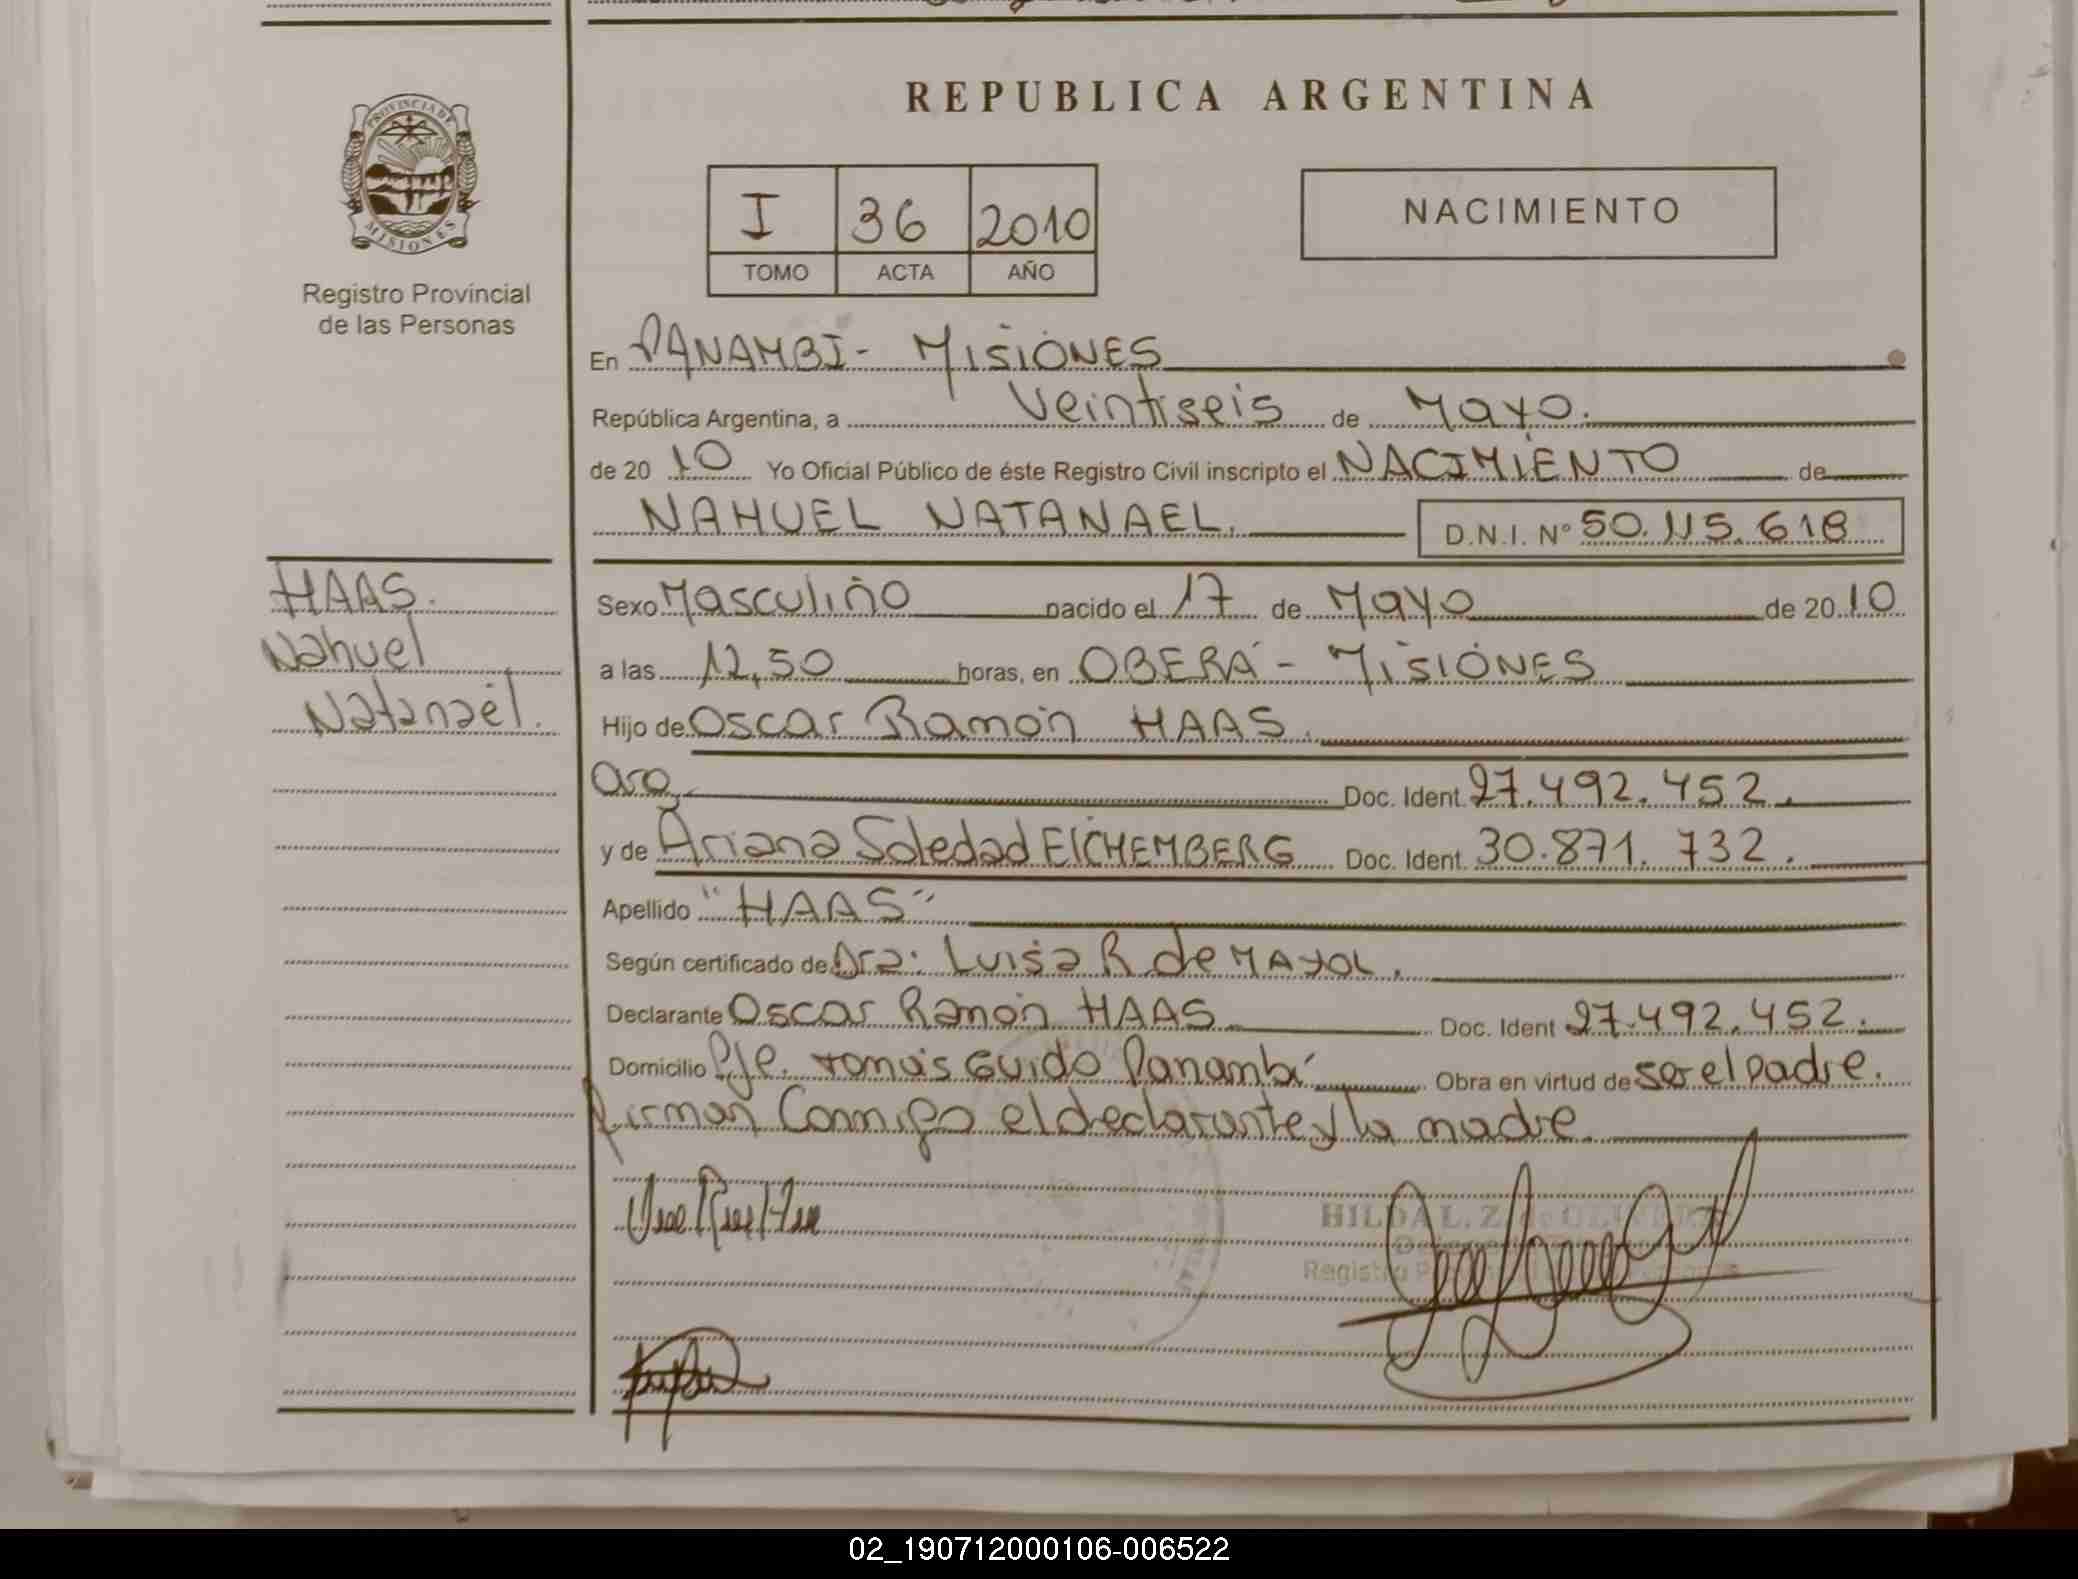 PROVINCIA DE
MISIONES
Registro Provincial
de las Personas
REPUBLICA ARGENTINA
I 36 2010
TOMO ACTA AÑO
NACIMIENTO
En PANAMBI - MISIONES
República Argentina, a Veintiseis de Mayo.
de 20 10 Yo Oficial Público de éste Registro Civil inscripto el NACIMIENTO de
NAHUEL NATANAEL. D.N.I. Nº 50.115.618
HAAS.
Nahuel
Natanael.
Sexo Masculino nacido el 17 de Mayo de 20 10
a las 12,50 horas, en OBERÁ - MISIONES
Hijo de Oscar Ramón HAAS.
Doc. Ident. 27.492.452.
y de Ariana Soledad EICHEMBERG Doc. Ident. 30.871.732.
Apellido "HAAS"
Según certificado de Dra: Luisa R de MAYOL.
Declarante Oscar Ramón HAAS Doc. Ident 27.492.452.
Domicilio Pje. Tomás Guido Panambí Obra en virtud de ser el padre.
firman Conmigo el declarante y la madre
HILDA L. Z. de
Registro
02_190712000106-006522